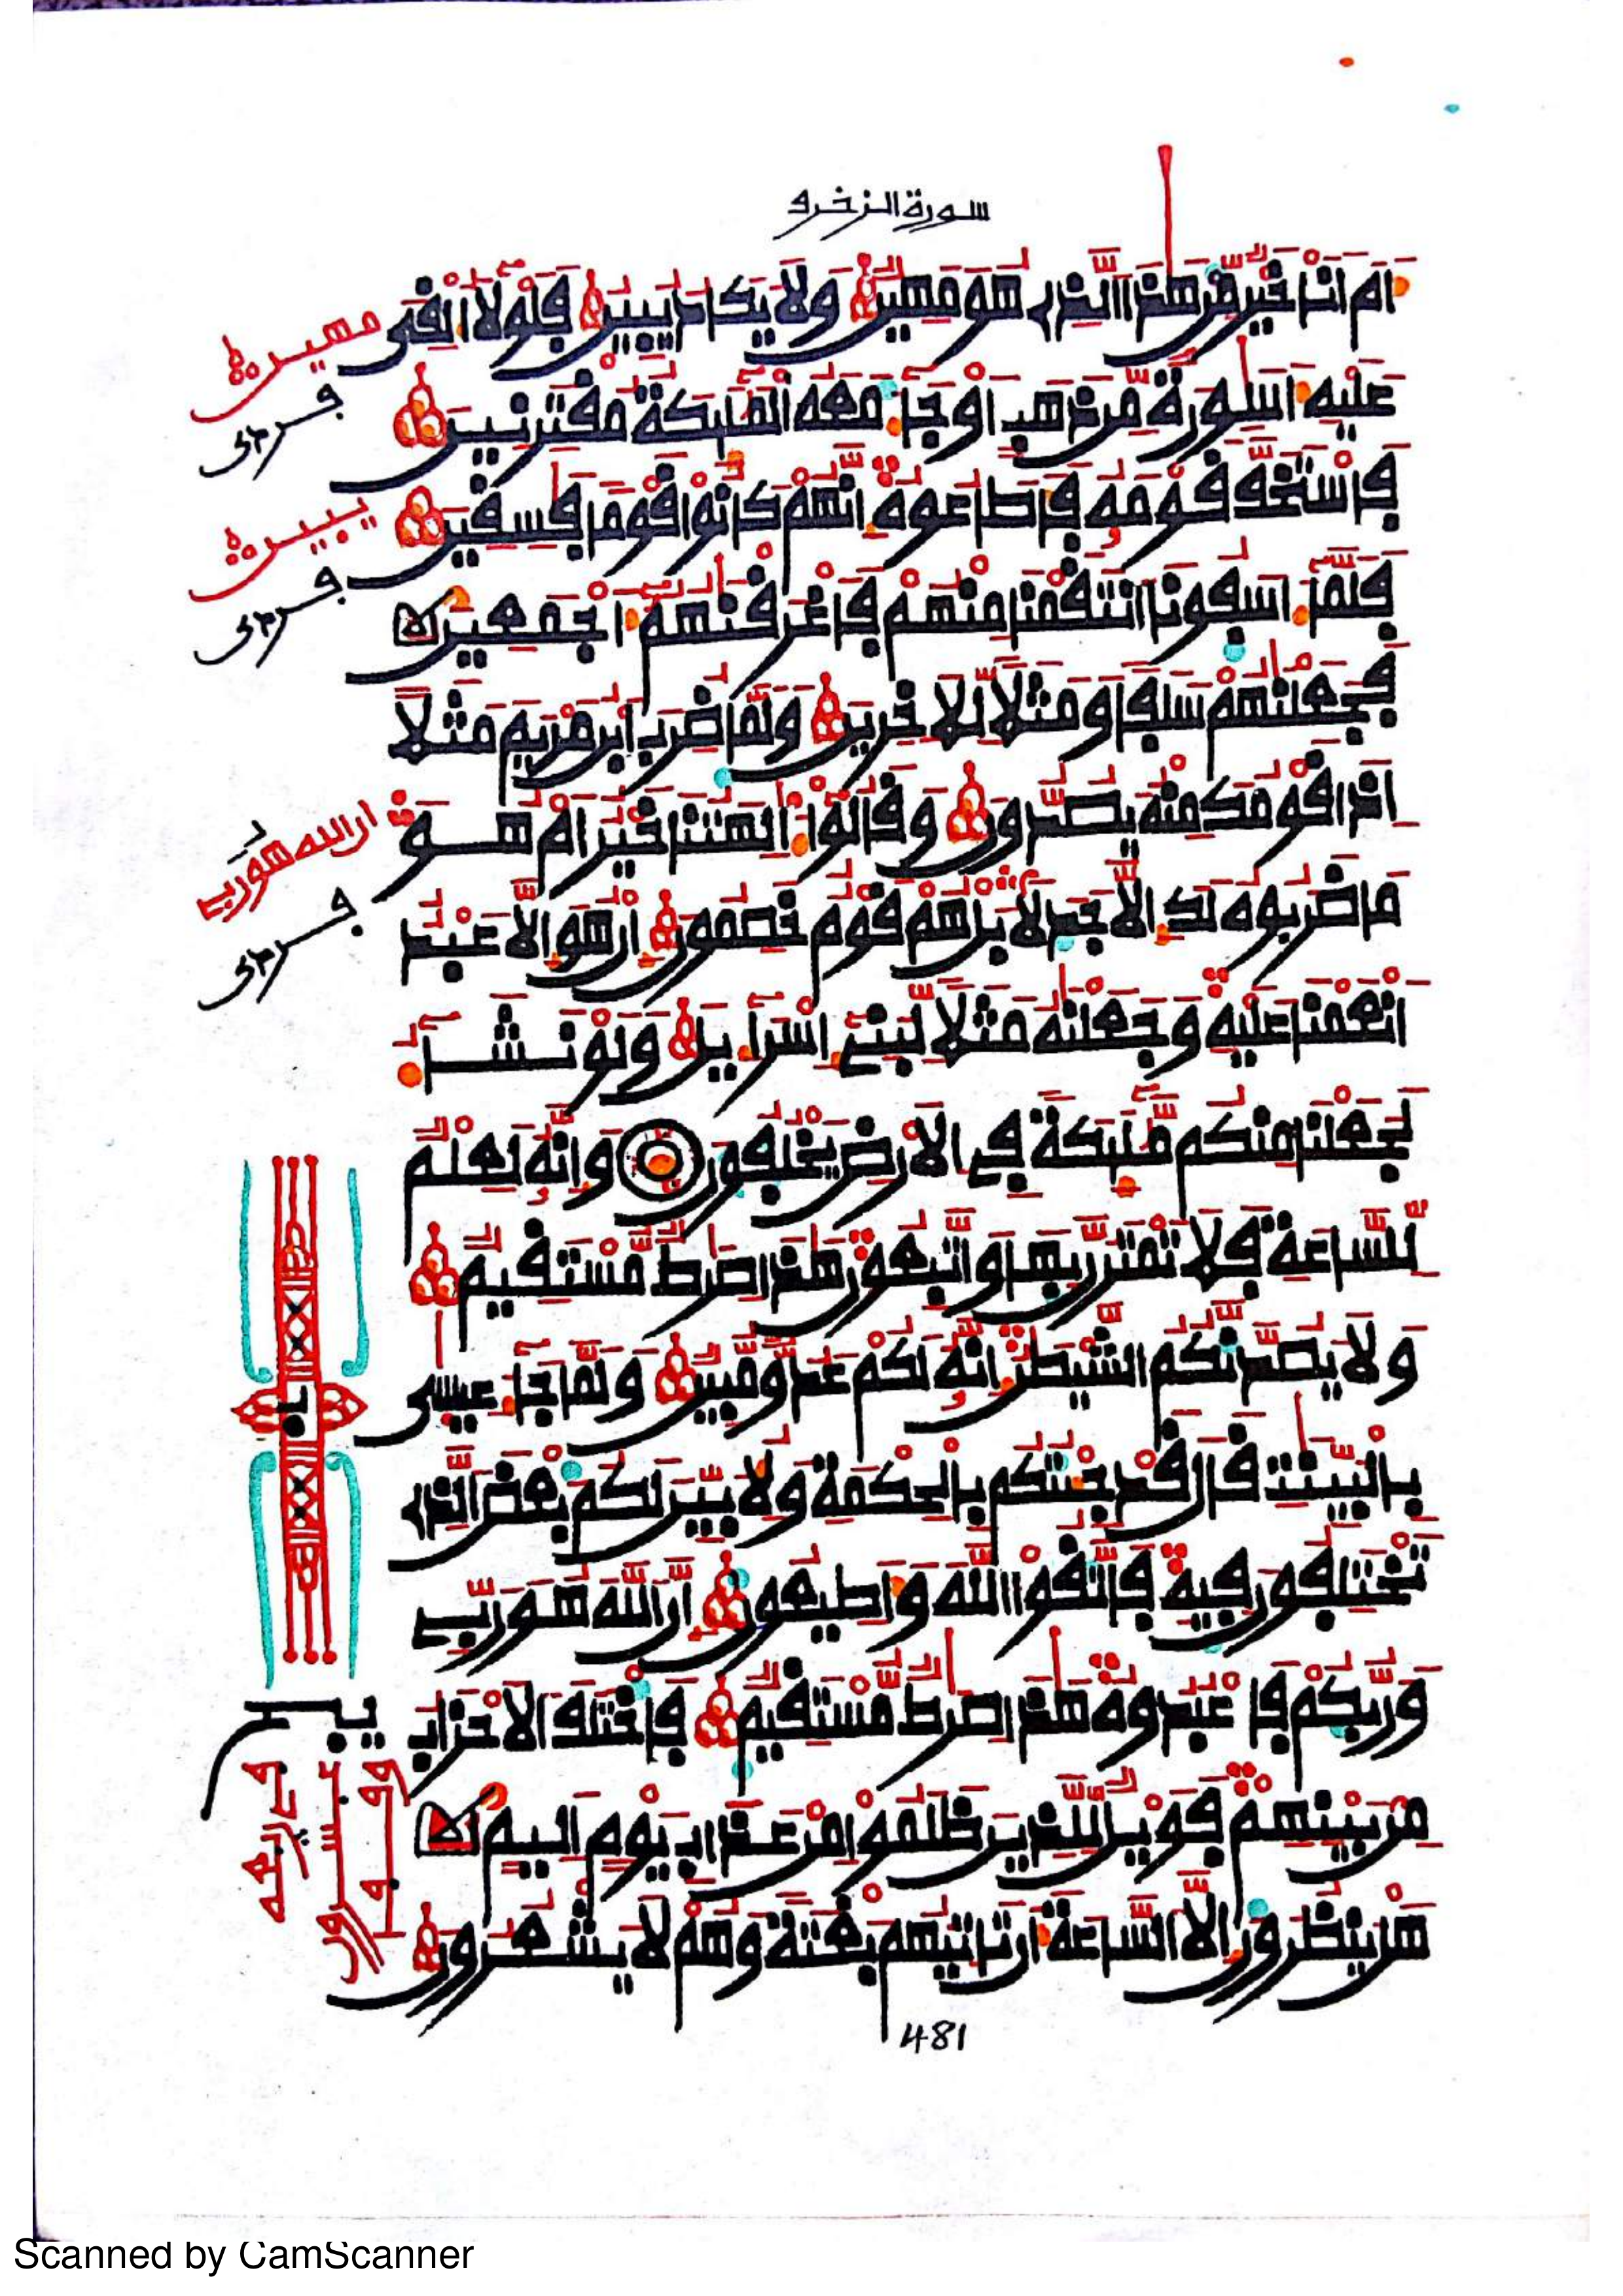 سورة الزخرف
أَمَ اَنَا خَيْرٌ مِّنْ هَٰذَا اَ۬لذِے هُوَ مَهِينٌ وَلَا يَكَادُ يُبِينُ فَلَوْلَآ أُلْقِيَ
عَلَيْهِ أَسَٰوِرَةٌ مِّن ذَهَبٍ اَوْ جَآءَ مَعَهُ اُ۬لْمَلَٰٓئِكَةُ مُقْتَرِنِينَ
فَاسْتَخَفَّ قَوْمَهُۥ فَأَطَاعُوهُ إِنَّهُمْ كَانُواْ قَوْماٗ فَٰسِقِينَ
فَلَمَّآ ءَاسَفُونَا اَ۪نتَقَمْنَا مِنْهُمْ فَأَغْرَقْنَٰهُمُۥٓ أَجْمَعِينَ
فَجَعَلْنَٰهُمْ سَلَفاٗ وَمَثَلاٗ لِّلَاخِرِينَ وَلَمَّا ضُرِبَ اَ۪بْنُ مَرْيَمَ مَثَلاً
اِذَا قَوْمُكَ مِنْهُ يَصُدُّونَ وَقَالُوٓاْ ءَأَٰلِهَتُنَا خَيْرٌ اَمْ هُوَ
مَا ضَرَبُوهُ لَكَ إِلَّا جَدَلَاۢ بَلْ هُمْ قَوْمٌ خَصِمُونَ إِنْ هُوَ إِلَّا عَبْدٌ
اَنْعَمْنَا عَلَيْهِ وَجَعَلْنَٰهُ مَثَلاٗ لِّبَنِےٓ إِسْرَآءِيلَ وَلَوْ نَشَآءُ
لَجَعَلْنَا مِنكُم مَّلَٰٓئِكَةٗ فِے اِ۬لَارْضِ يَخْلُفُونَ وَإِنَّهُۥ لَعِلْمٌ
لِّلسَّاعَةِ فَلَا تَمْتَرُنَّ بِهَا وَاتَّبِعُونِ هَٰذَا صِرَٰطٌ مُّسْتَقِيمٌ
وَلَا يَصُدَّنَّكُمُ اُ۬لشَّيْطَٰنُ إِنَّهُۥ لَكُمْ عَدُوٌّ مُّبِينٌ وَلَمَّا جَآءَ عِيسَىٰ
بِالْبَيِّنَٰتِ قَالَ قَدْ جِئْتُكُم بِالْحِكْمَةِ وَلِأُبَيِّنَ لَكُم بَعْضَ اَ۬لذِے
تَخْتَلِفُونَ فِيهِ فَاتَّقُواْ اُ۬للَّهَ وَأَطِيعُونِ إِنَّ اَ۬للَّهَ هُوَ رَبِّے
وَرَبُّكُمْ فَاعْبُدُوهُ هَٰذَا صِرَٰطٌ مُّسْتَقِيمٌ فَاخْتَلَفَ اَ۬لَاحْزَابُ
مِنۢ بَيْنِهِمْ فَوَيْلٌ لِّلذِينَ ظَلَمُواْ مِنْ عَذَابِ يَوْمٍ اَلِيمٍ
هَلْ يَنظُرُونَ إِلَّا اَ۬لسَّاعَةَ أَن تَاتِيَهُم بَغْتَةٗ وَهُمْ لَا يَشْعُرُونَ
مهين
يبين
ان الله هو ربے
481
Scanned by CamScanner